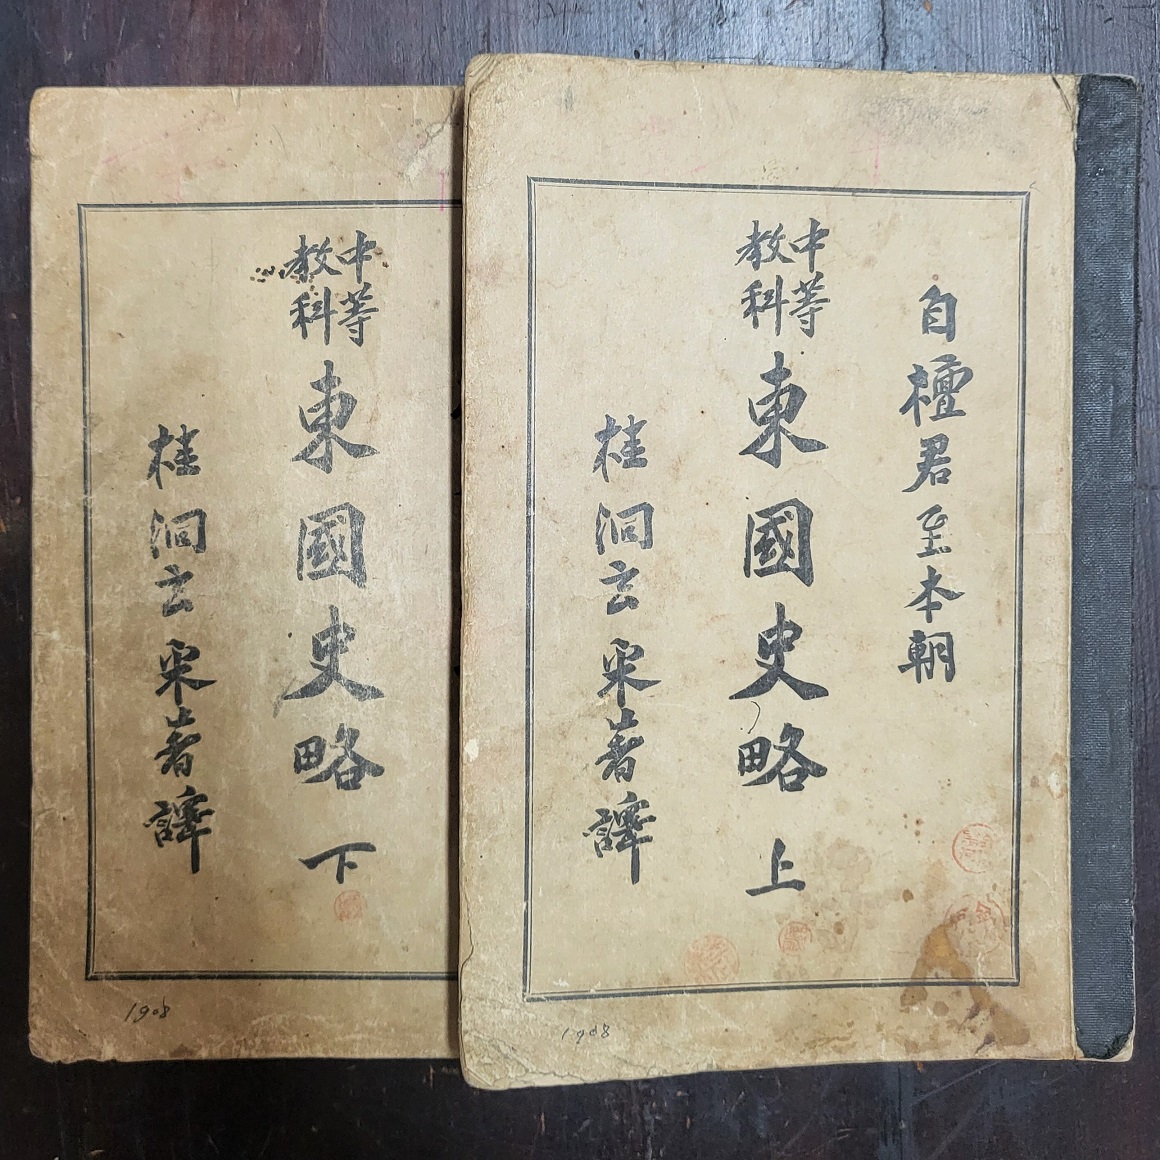 自檀君至本朝
中等
教科
東國史略 上
桂洞玄采著譯
1908
中等
教科
東國史略 下
桂洞玄采著譯
1908